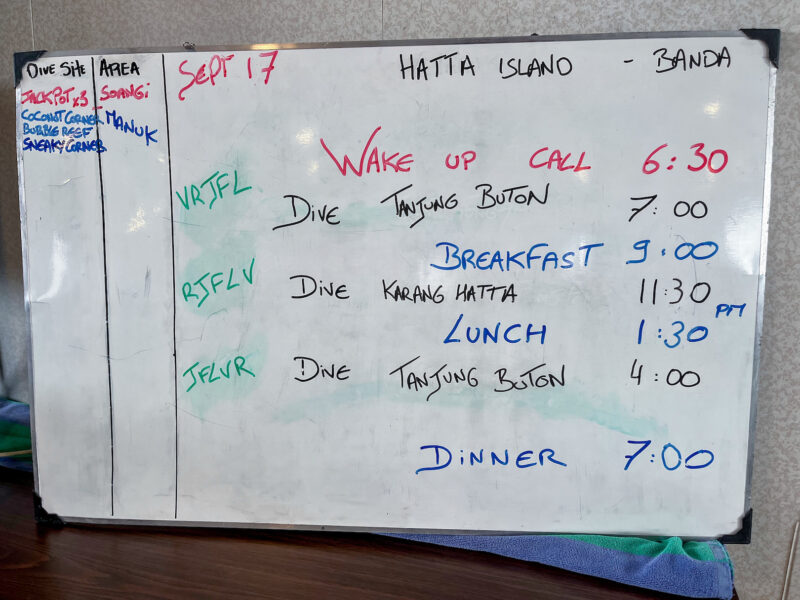 DIVE SITE AREA
JACKPOT x3 SOANGI
COCONUT CORNER
BUBBLE REEF MANUK
SNEAKY CORNER
SEPT 17 HATTA ISLAND - BANDA
WAKE UP CALL 6:30
VRJFL DIVE TANJUNG BUTON 7:00
BREAKFAST 9:00
RJFLV DIVE KARANG HATTA 11:30
LUNCH 1:30 PM
JFLVR DIVE TANJUNG BUTON 4:00
DINNER 7:00